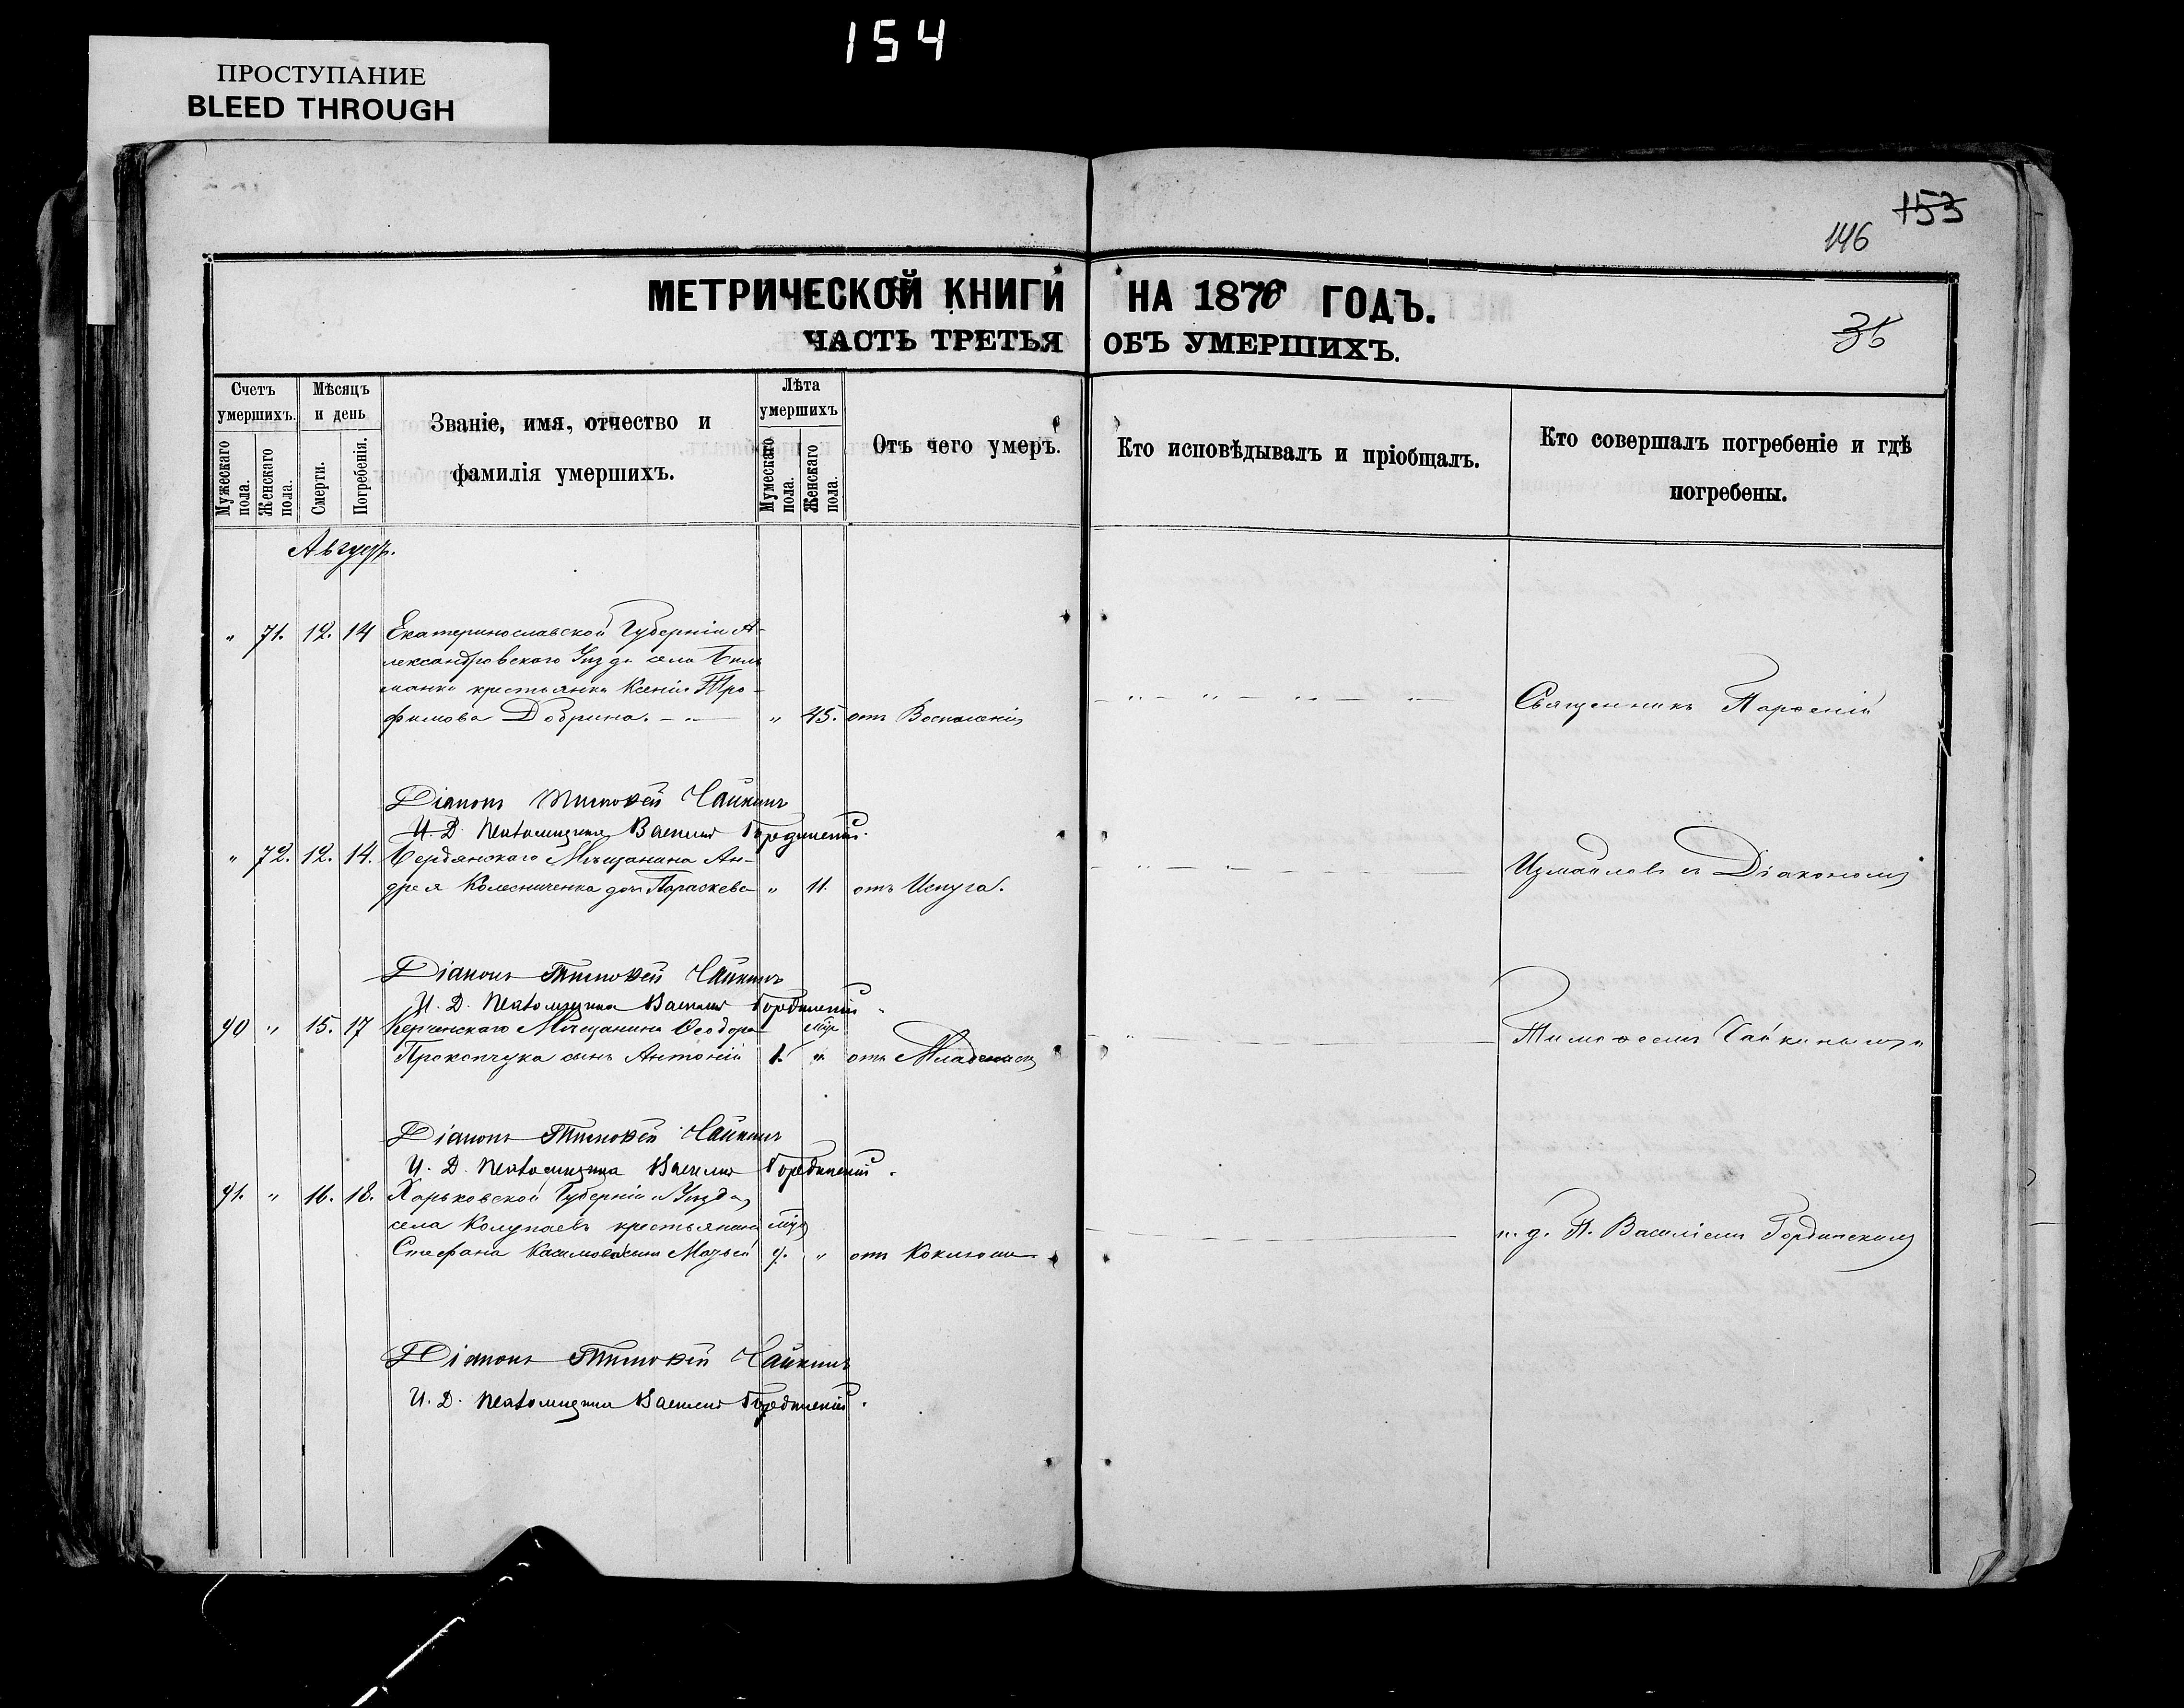 154
ПРОСТУПАНИЕ
BLEED THROUGH
153
146
МЕТРИЧЕСКОЙ КНИГИ НА 1876 ГОДЪ.
ЧАСТЬ ТРЕТЬЯ ОБЪ УМЕРШИХЪ.
36
Счетъ умершихъ.
Мужескаго пола.
Женскаго пола.
Мѣсяцъ и день
Смерти.
Погребенія.
Званіе, имя, отчество и
фамилія умершихъ.
Лѣта умершихъ
Мужескаго пола.
Женскаго пола.
Отъ чего умеръ.
Кто исповѣдывалъ и пріобщалъ.
Кто совершалъ погребеніе и гдѣ
погребены.
Августъ.
" 71. 12. 14 Екатеринославской Губерніи А-
лександровскаго Уѣзда села
манки крестьянка Ксенія Тро-
фимова Добрина. " 45. отъ Воспаленія
Священникъ Парѳеній
Діаконъ Тимоѳей Чайкинъ
И. Д. Псаломщика Василій Гординскій.
" 72. 12. 14. Бердянскаго Мѣщанина Ан-
дрея Колесниченка дочь Параскева " 11. отъ Испуга.
Измаиловъ съ Діакономъ
Діаконъ Тимоѳей Чайкинъ
И. Д. Псаломщика Василій Гординскій
90 " 15. 17 Керченскаго Мѣщанина Ѳеодора
Прокопчука сынъ Антоній 1. " отъ Младенческ
Тимоѳеемъ Чайкинымъ и
Діаконъ Тимоѳей Чайкинъ
И. Д. Псаломщика Василій Гординскій.
91. " 16. 18. Харьковской Губерніи и Уѣзда
села крестьянина
Стефана сынъ 9. " отъ Коклюша
и. д. П. Василіемъ Гординскимъ
Діаконъ Тимоѳей Чайкинъ
И. Д. Псаломщика Василій Гординскій.